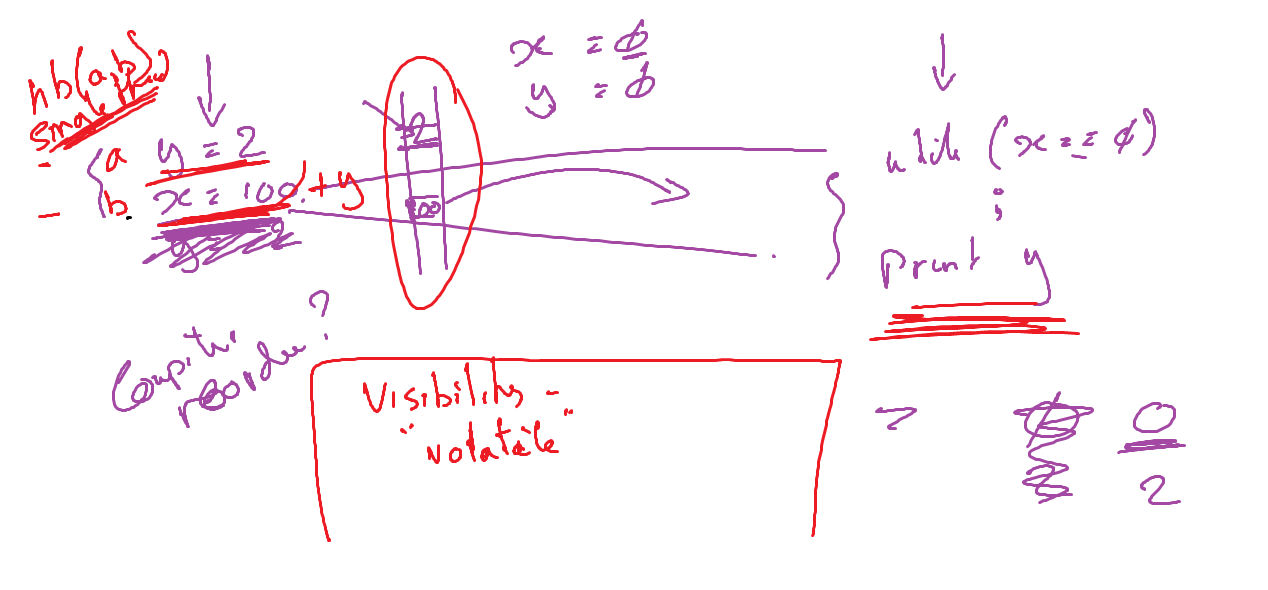 hb(a,b)
single thread
x = 0
y = 0
a y = 2
b x = 100 + y
2
100
while (x == 0)
;
print y
Compiler
reorder?
Visibility -
"volatile"
0
2